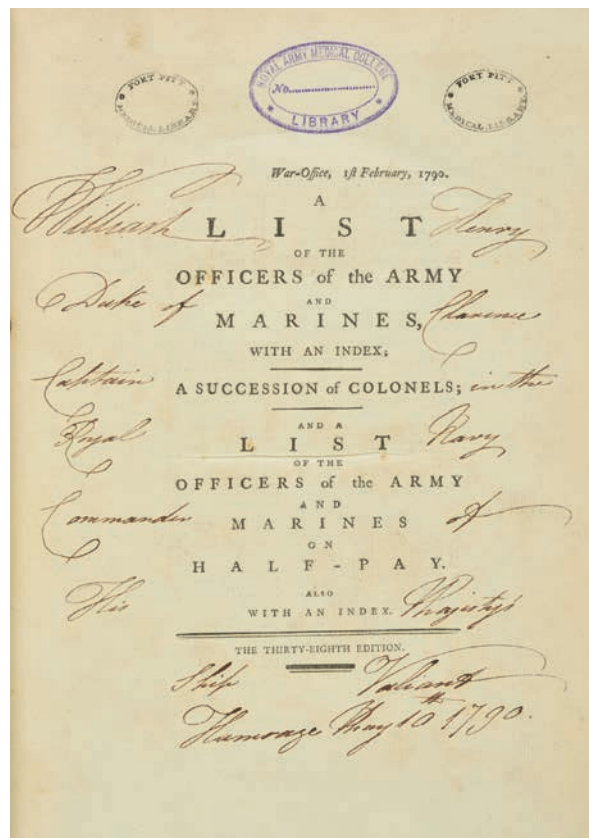 FORT PITT MEDICAL LIBRARY
ROYAL ARMY MEDICAL COLLEGE
No.
LIBRARY
FORT PITT MEDICAL LIBRARY
War-Office, 1st February, 1790.
A
William LIST Henry
OF THE
OFFICERS of the ARMY
Duke of AND
MARINES, Clarence
WITH AN INDEX;
Captain A SUCCESSION of COLONELS; in the
AND A
Royal LIST Navy
OF THE
OFFICERS of the ARMY
AND
Commander MARINES of
ON
HALF-PAY.
ALSO
His WITH AN INDEX. Majesty's
THE THIRTY-EIGHTH EDITION.
Ship Valiant
Hamoaze May 10th 1790.